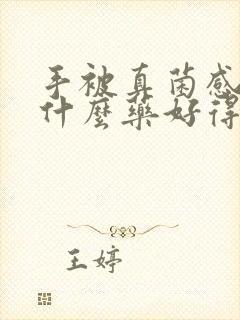 手被真菌感
什麼藥好得
王婷